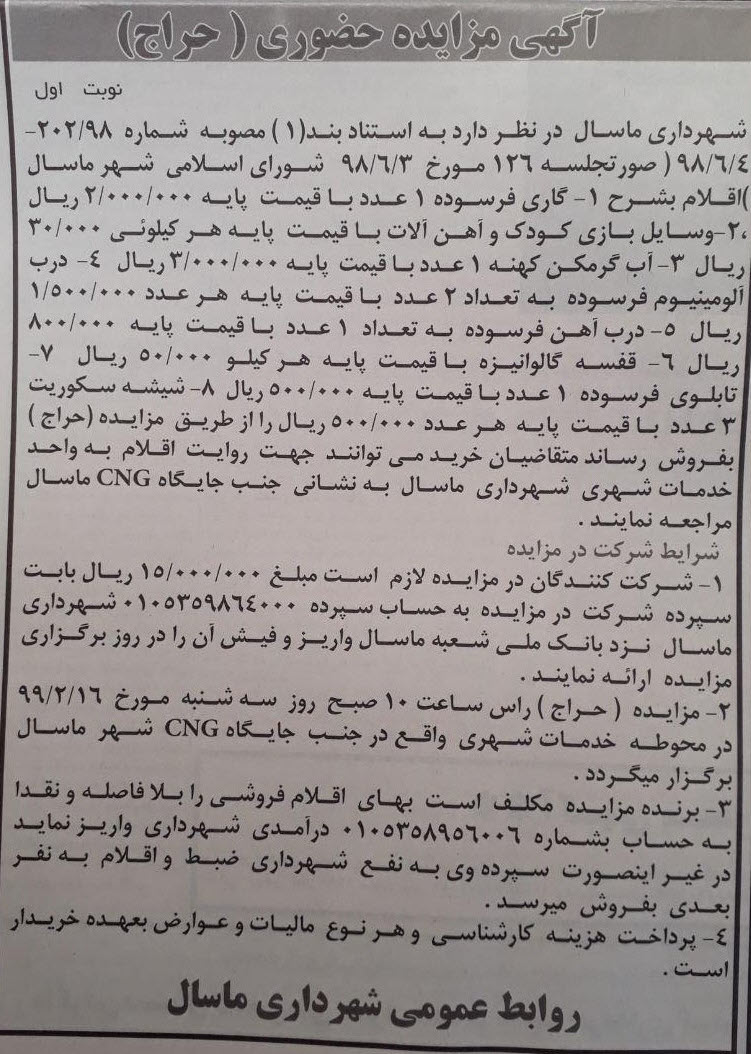 آگهی مزایده حضوری ( حراج)
نوبت اول
شهرداری ماسال در نظر دارد به استناد بند(۱) مصوبه شماره ۲۰۲/۹۸-
۹۸/٦/٤ ( صورتجلسه ۱۲٦ مورخ ۹۸/٦/۳ شورای اسلامی شهر ماسال
)اقلام بشرح ۱- گاری فرسوده ۱ عدد با قیمت پایه ۲/۰۰۰/۰۰۰ ریال
،۲-وسایل بازی کودک و آهن آلات با قیمت پایه هر کیلوئی ۳۰/۰۰۰
ریال ۳- آب گرمکن کهنه ۱ عدد با قیمت پایه ۳/۰۰۰/۰۰۰ ریال ٤- درب
آلومینیوم فرسوده به تعداد ۲ عدد با قیمت پایه هر عدد ۱/۵۰۰/۰۰۰
ریال ۵- درب آهن فرسوده به تعداد ۱ عدد با قیمت پایه ۸۰۰/۰۰۰
ریال ٦- قفسه گالوانیزه با قیمت پایه هر کیلو ۵۰/۰۰۰ ریال ۷-
تابلوی فرسوده ۱ عدد با قیمت پایه ۵۰۰/۰۰۰ ریال ۸- شیشه سکوریت
۳ عدد با قیمت پایه هر عدد ۵۰۰/۰۰۰ ریال را از طریق مزایده (حراج )
بفروش رساند متقاضیان خرید می توانند جهت روایت اقلام به واحد
خدمات شهری شهرداری ماسال به نشانی جنب جایگاه CNG ماسال
مراجعه نمایند .
شرایط شرکت در مزایده
۱- شرکت کنندگان در مزایده لازم است مبلغ ۱۵/۰۰۰/۰۰۰ ریال بابت
سپرده شرکت در مزایده به حساب سپرده ۰۱۰۵۳۵۹۸٦٤۰۰۰ شهرداری
ماسال نزد بانک ملی شعبه ماسال واریز و فیش آن را در روز برگزاری
مزایده ارائه نمایند .
۲- مزایده ( حراج ) راس ساعت ۱۰ صبح روز سه شنبه مورخ ۹۹/۲/۱٦
در محوطه خدمات شهری واقع در جنب جایگاه CNG شهر ماسال
برگزار میگردد .
۳- برنده مزایده مکلف است بهای اقلام فروشی را بلا فاصله و نقدا
به حساب بشماره ۰۱۰۵۳۵۸۹۵٦۰۰٦ درآمدی شهرداری واریز نماید
در غیر اینصورت سپرده وی به نفع شهرداری ضبط و اقلام به نفر
بعدی بفروش میرسد .
٤- پرداخت هزینه کارشناسی و هر نوع مالیات و عوارض بعهده خریدار
است .
روابط عمومی شهرداری ماسال